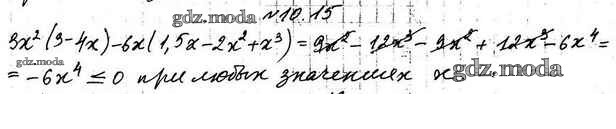 №10.15
gdz.moda
3x² (3-4x)-6x(1,5x-2x²+x³)=9x²-12x³-9x²+12x³-6x⁴=
gdz.moda
=-6x⁴≤0 при любых значениях x
gdz.moda